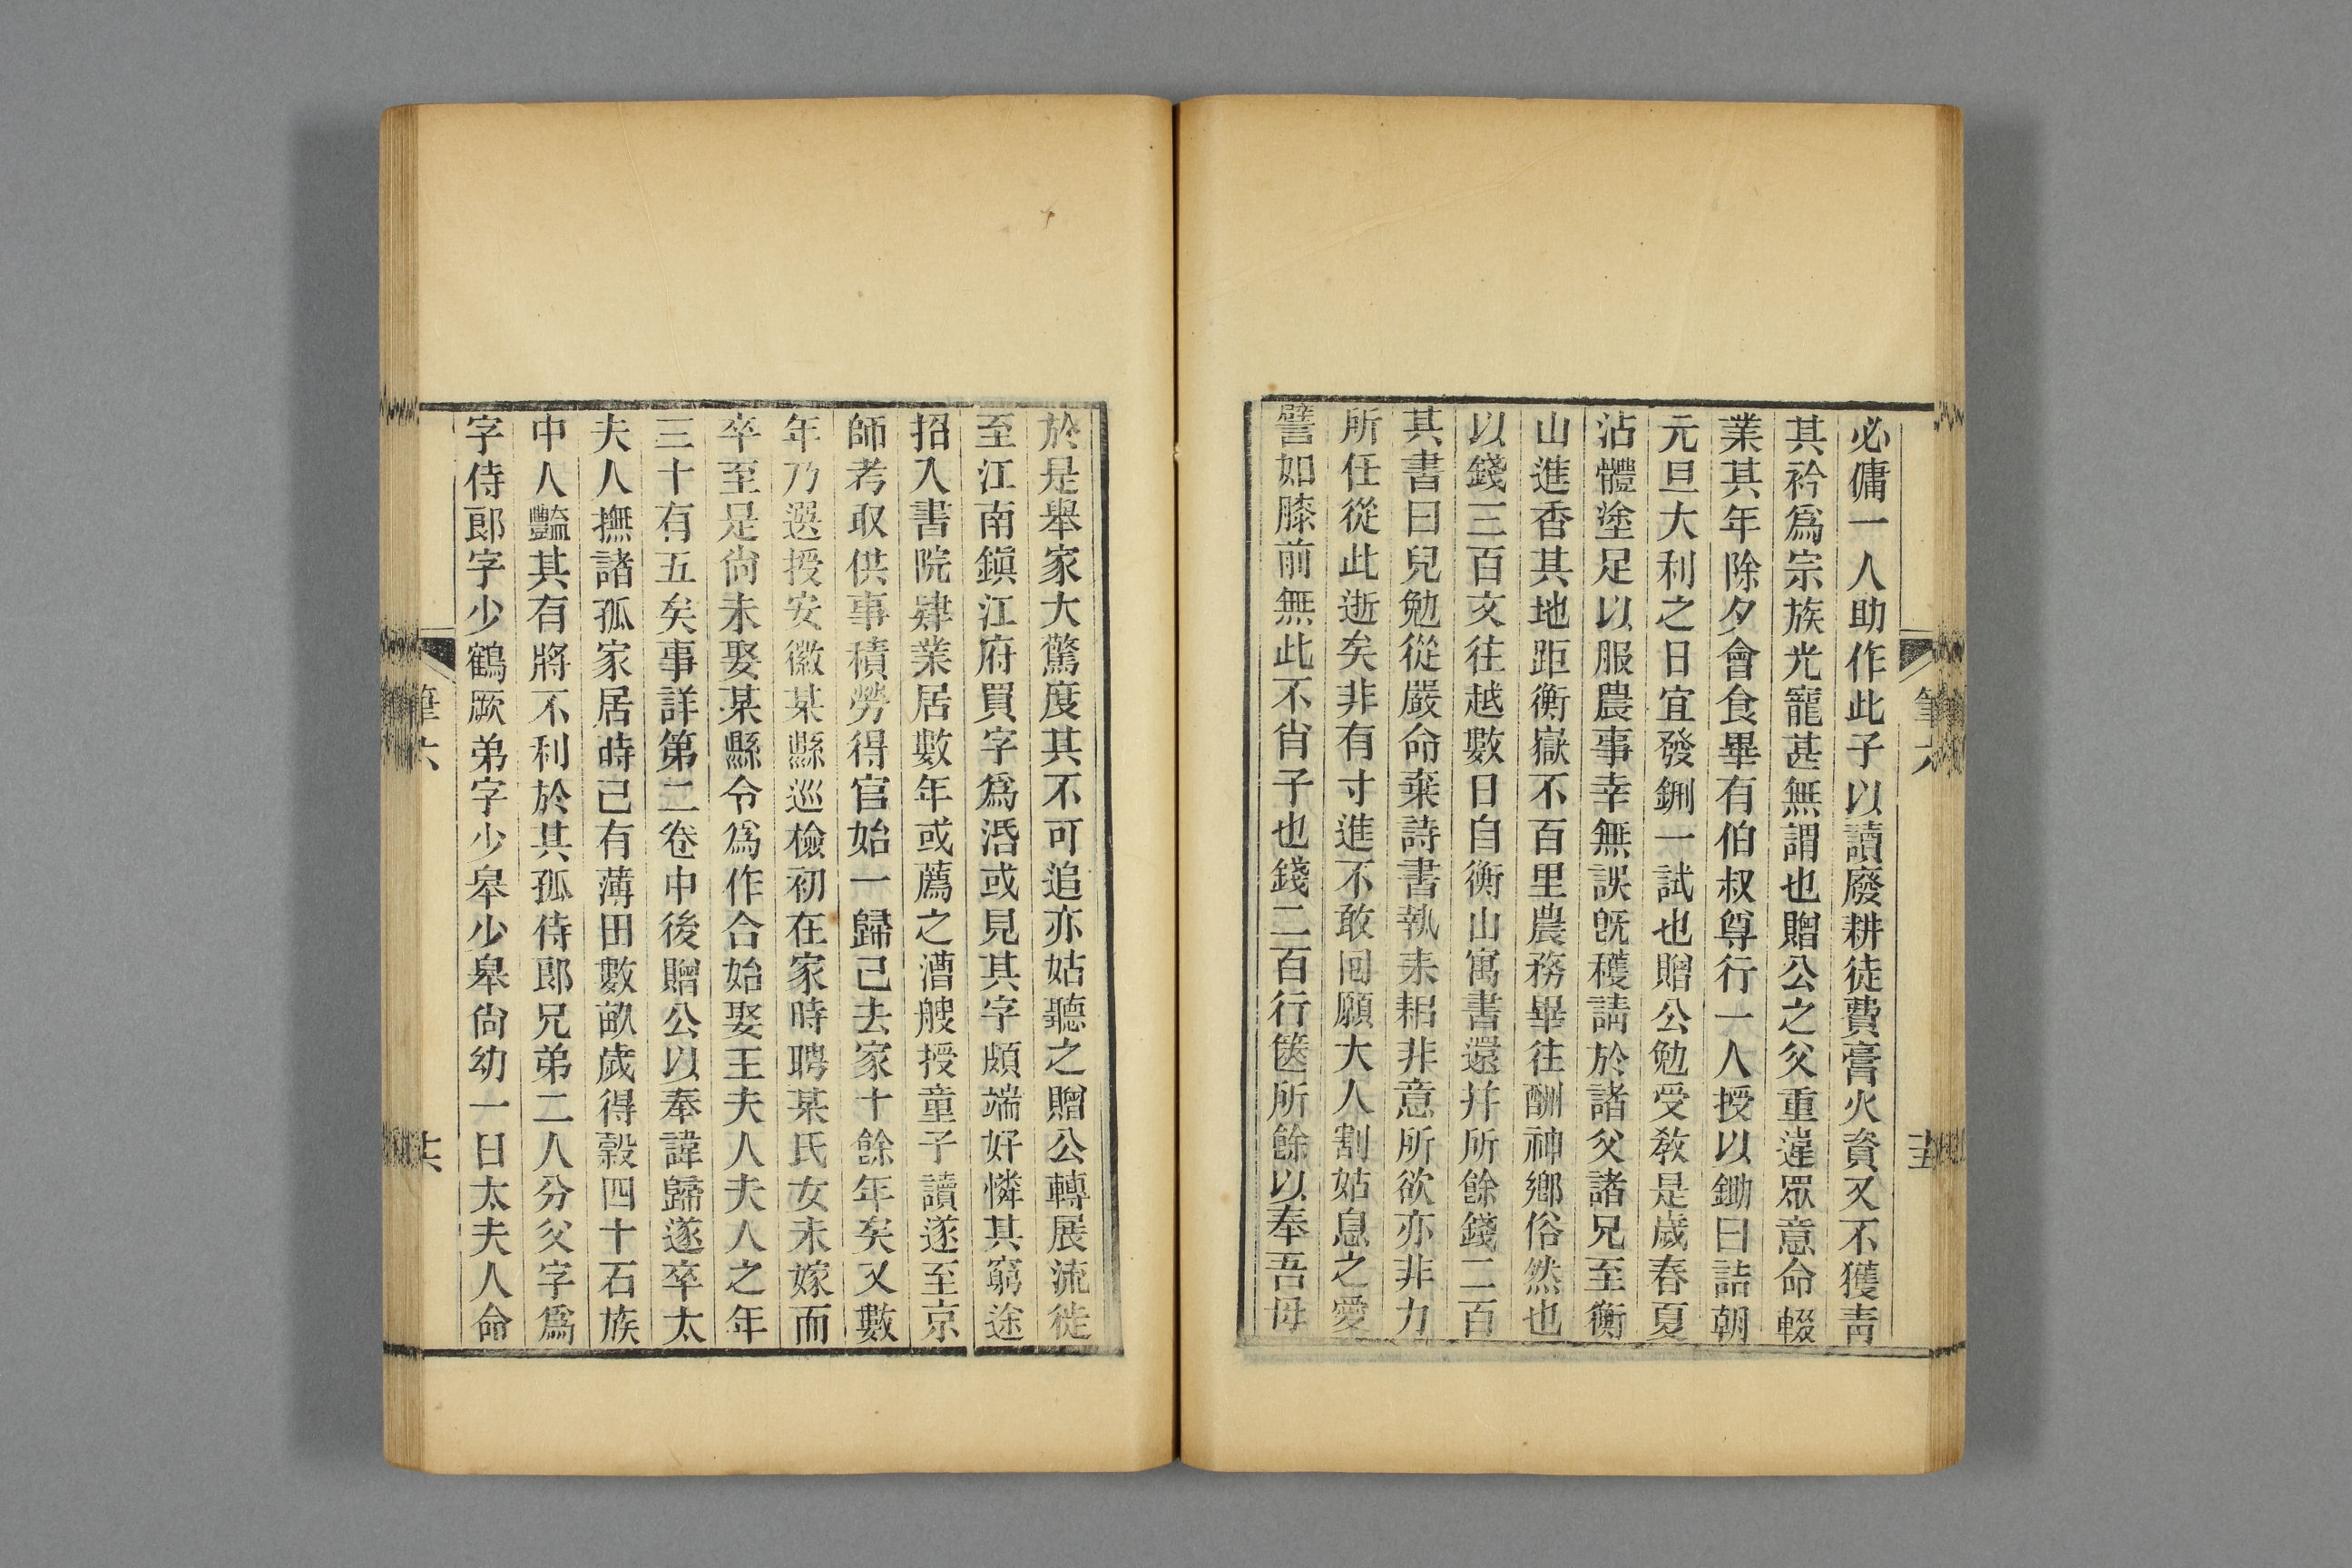 必傭一人助作此子以讀廢耕徒費膏火資又不獲靑
其衿爲宗族光寵甚無謂也贈公之父重違眾意命輟
業其年除夕會食畢有伯叔尊行一人授以鋤曰詰朝
元旦大利之日宜發鉶一試也贈公勉受教是歲春夏
沾體塗足以服農事幸無誤旣穫請於諸父諸兄至衡
山進香其地距衡嶽不百里農務畢往酬神鄉俗然也
以錢三百文往越數日自衡山寓書還幷所餘錢二百
其書曰兒勉從嚴命棄詩書執耒耜非意所欲亦非力
所任從此逝矣非有寸進不敢回願大人割姑息之愛
譬如膝前無此不肖子也錢二百行篋所餘以奉吾母
於是舉家大驚度其不可追亦姑聽之贈公轉展流徙
至江南鎭江府買字爲活或見其字頗端好憐其窮途
招入書院肄業居數年或薦之漕艘授童子讀遂至京
師考取供事積勞得官始一歸已去家十餘年矣又數
年乃選授安徽某縣巡檢初在家時聘某氏女未嫁而
卒至是尙未娶某縣令爲作合始娶王夫人夫人之年
三十有五矣事詳第二卷中後贈公以奉諱歸遂卒太
夫人撫諸孤家居時已有薄田數畝歲得穀四十石族
中人豔其有將不利於其孤侍郎兄弟二人分父字爲
字侍郎字少鶴厥弟字少皋少皋尙幼一日太夫人命
筆六